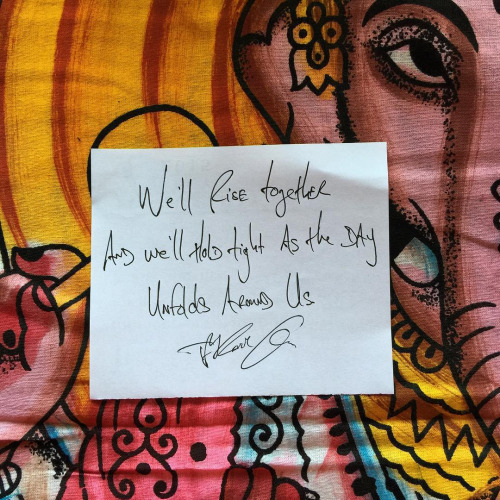 We'll RISE together
AND we'll Hold tight As the DAY
Unfolds Around Us